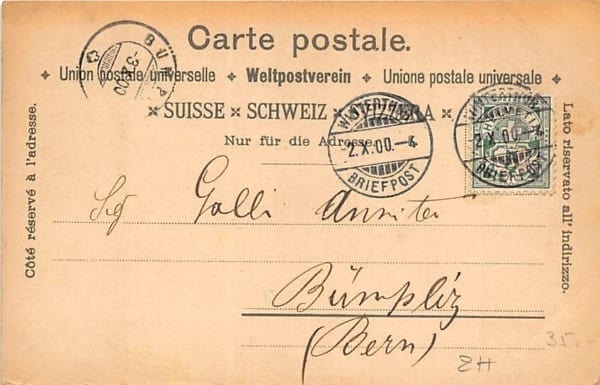 Carte postale.
Union postale universelle ✤ Weltpostverein ✤ Unione postale universale
SUISSE ✕ SCHWEIZ ✕
Nur für die Adresse.
Côté réservé à l'adresse.
Lato riservato all' indirizzo.
BÜMP
-3.X.00
WINTERTHUR
2.X.00.-4
BRIEFPOST
WINTERTHUR
2.X.00.-4
BRIEFPOST
Sig Galli
Bümpliz
(Bern)
ZH
35.-